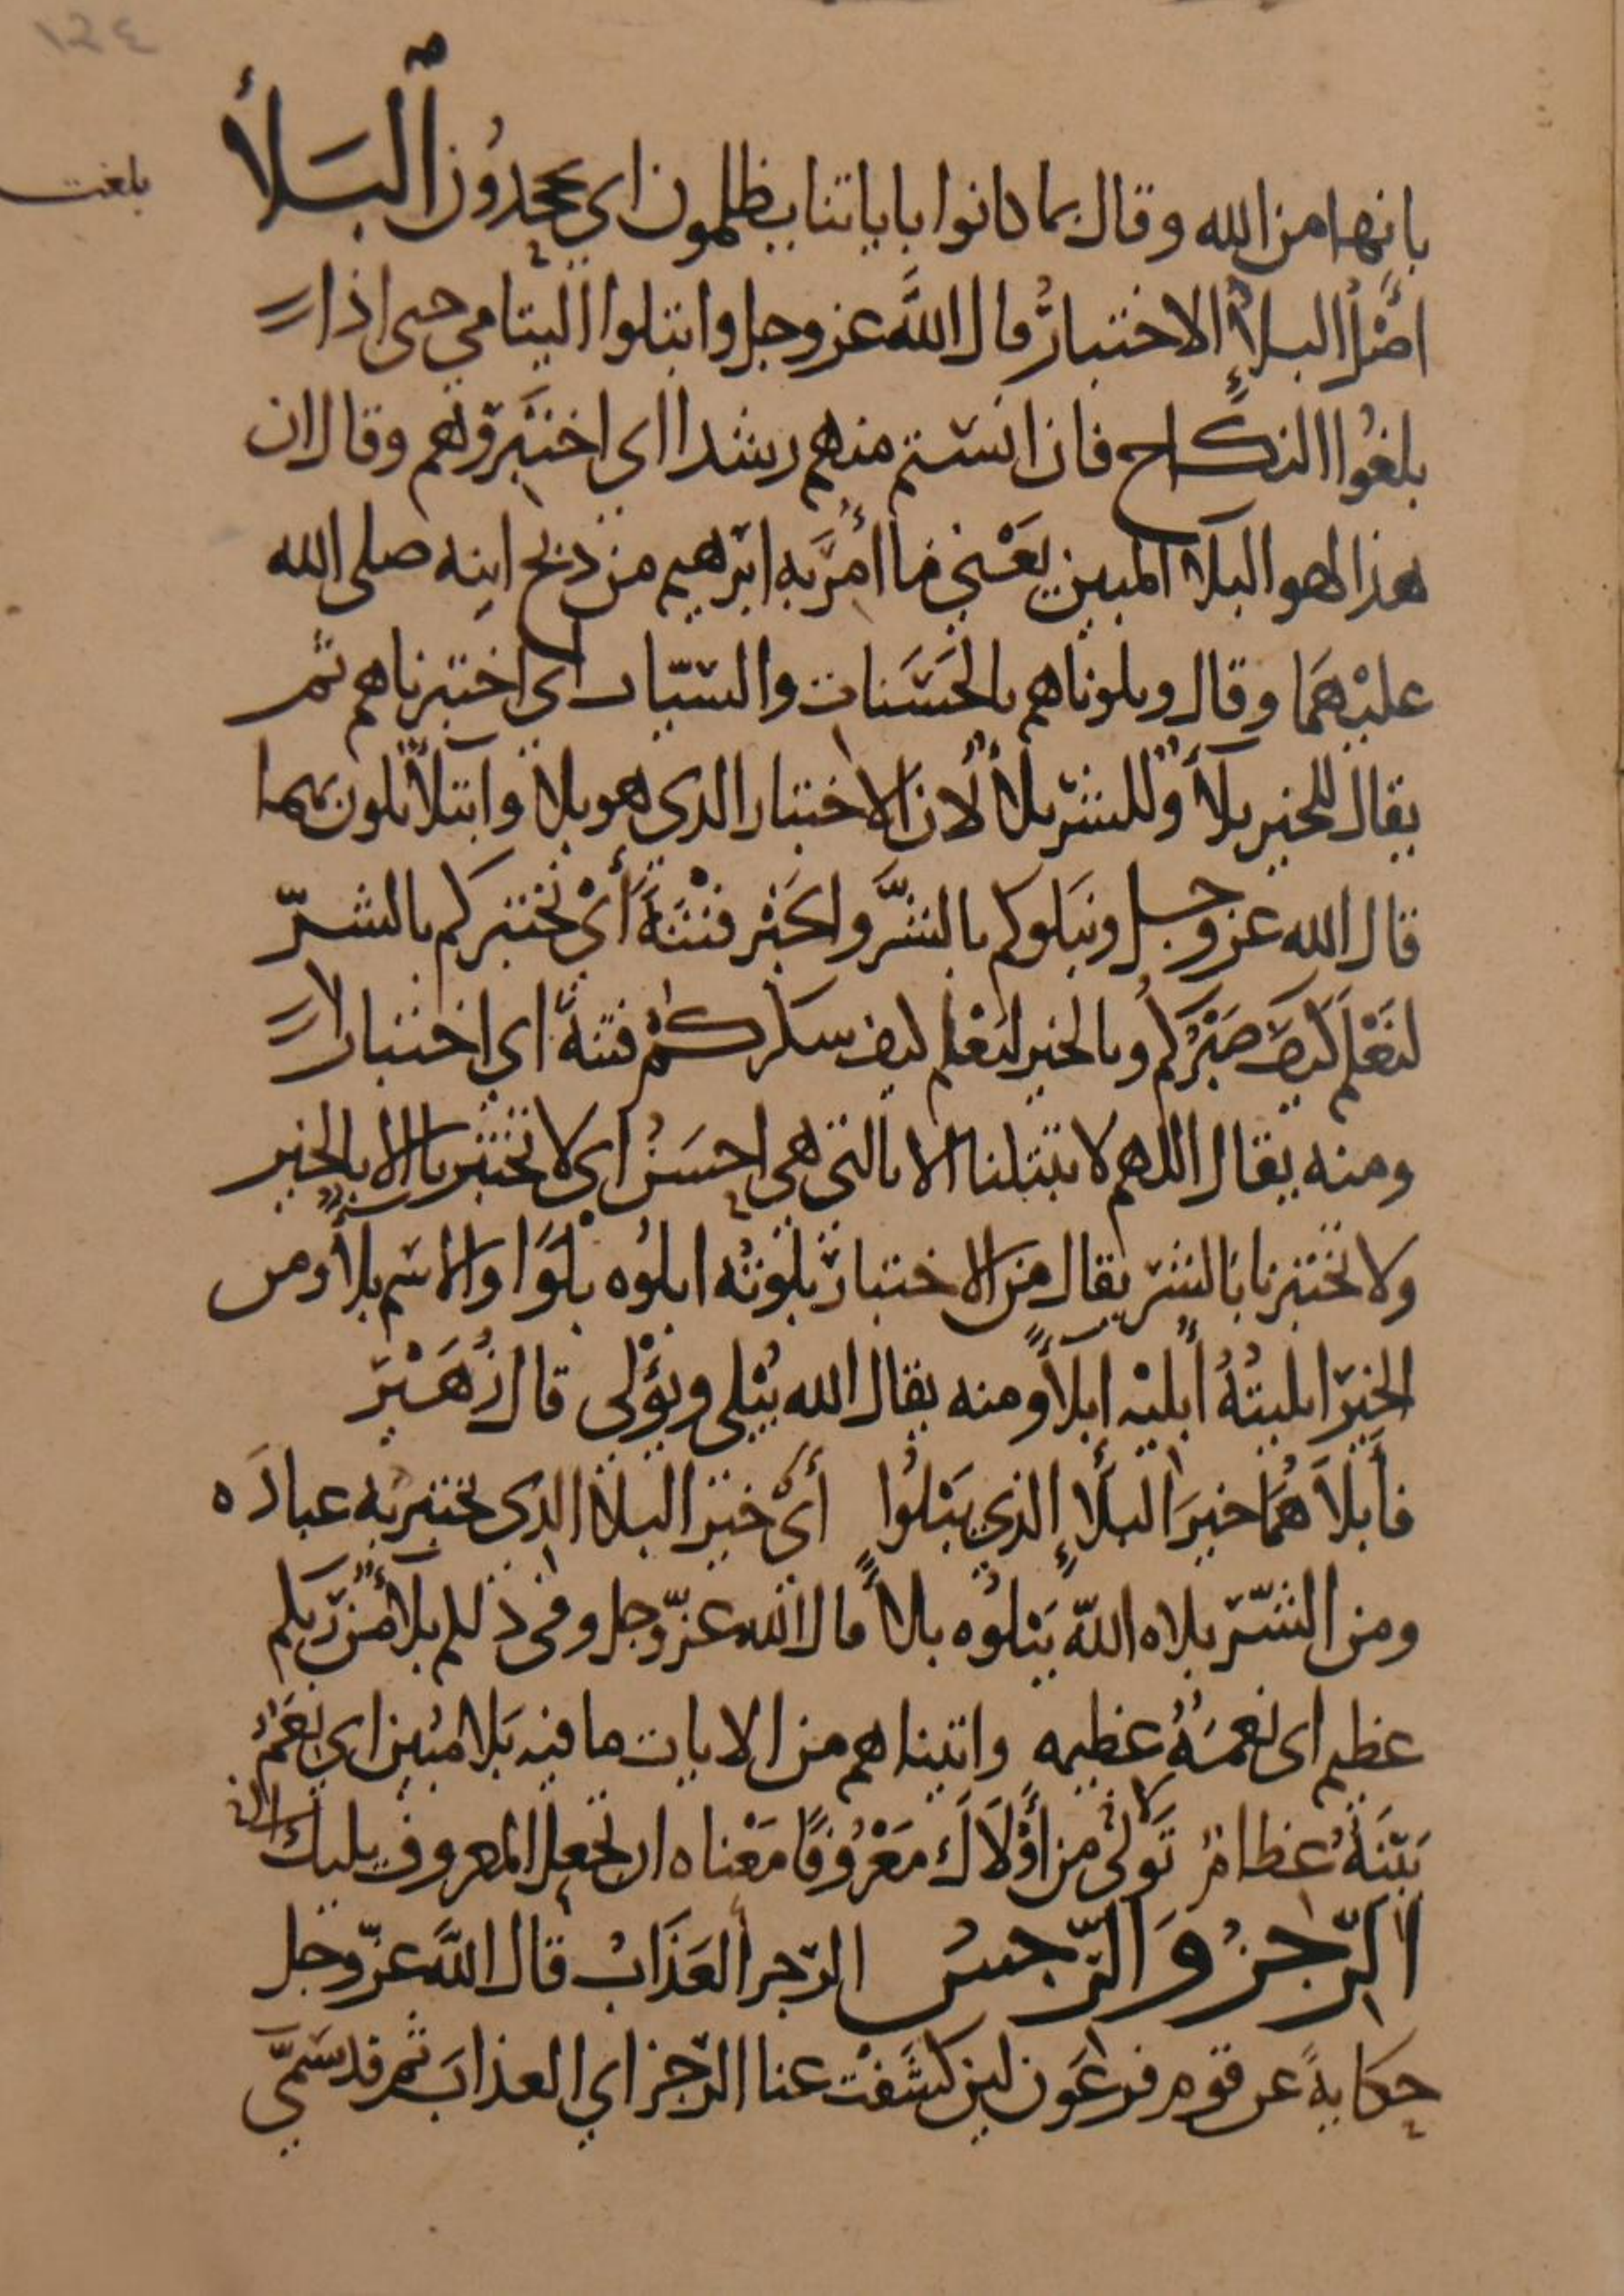 ١٢٤
بانها من الله وقال بما كانوا باياتنا يظلمون اي يجحدون البلأ
بلغت
اصل البلاء الاختبار قال الله عز وجل وابتلوا اليتامي حتى اذا
بلغوا النكاح فان انستم منهم رشدا اي اختبروهم وقال ان
هذا لهو البلا المبين يعني ما أُمر به ابرهيم من ذبح ابنه صلى الله
عليهما وقال وبلوناهم بالحسنات والسيات اي اختبرناهم ثم
يقال للخير بلاء وللشر بلاء لان الاختبار الذي هو بلاء وابتلاء يكون بهما
قال الله عز وجل ونبلوكم بالشر والخير فتنة أي نختبركم بالشر
لنعلم كيف صبركم وبالخير لنعلم كيف شكركم فتنة اي اختبارا
ومنه يقال اللهم لا تبتلنا الا بالتي هي احسن اي لا تختبرنا الا بالخير
ولا تختبرنا بالشر يقال من الاختبار بلوته ابلوه بلوا والاسم بلاء ومن
الخير ابليته أبليه إبلاء ومنه يقال الله يبلي ويؤلي قال زهير
فأبلاهما خير البلاء الذي يبلوا أي خير البلاء الذي يختبر به عباده
ومن الشر بلاه الله يبلوه بلاء قال الله عز وجل وفي ذلكم بلاء من ربكم
عظيم اي نعمة عظيمه واتيناهم من الايات ما فيه بلا مبين اي نعم
بينة عظام تولي من أولاك معروفا معناه ان تجعل المعروف يليك
الرجز والرجس الرجز العذاب قال الله عز وجل
حكاية عن قوم فرعون لين كشفت عنا الرجز اي العذاب ثم قد سمي